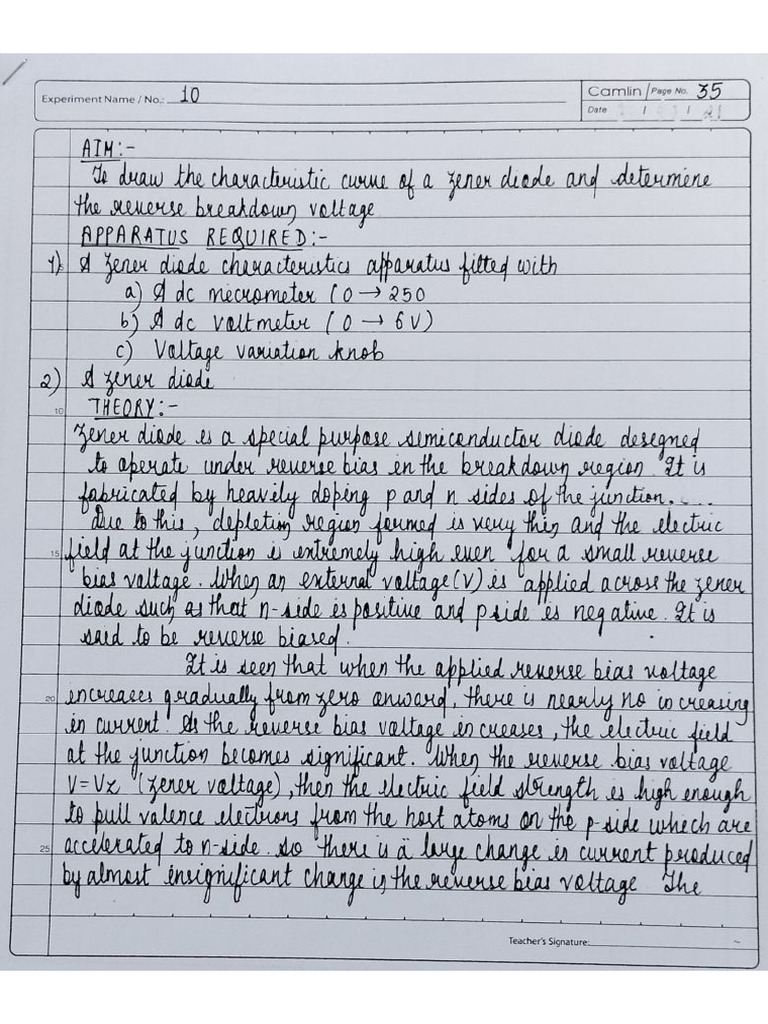 Experiment Name / No.: 10
Camlin Page No. 35
Date / /
AIM:-
To draw the characteristic curve of a zener diode and determine
the reverse breakdown voltage
APPARATUS REQUIRED:-
1) A zener diode characteristics apparatus fitted with
a) A dc micrometer (0 → 250
b) A dc voltmeter (0 → 6V)
c) Voltage variation knob
2) A zener diode
10
THEORY:-
Zener diode is a special purpose semiconductor diode designed
to operate under reverse bias in the breakdown region. It is
fabricated by heavily doping p and n sides of the junction.
Due to this, depletion region formed is very thin and the electric
15 field at the junction is extremely high even for a small reverse
bias voltage. When an external voltage (V) is applied across the zener
diode such as that n-side is positive and p side is negative. It is
said to be reverse biased.
It is seen that when the applied reverse bias voltage
20 increases gradually from zero onward, there is nearly no increasing
in current. As the reverse bias voltage increases, the electric field
at the junction becomes significant. When the reverse bias voltage
V = Vz (zener voltage), then the electric field strength is high enough
to pull valence electrons from the host atoms on the p-side which are
25 accelerated to n-side. so there is a large change in current produced
by almost insignificant change in the reverse bias voltage The
Teacher's Signature: